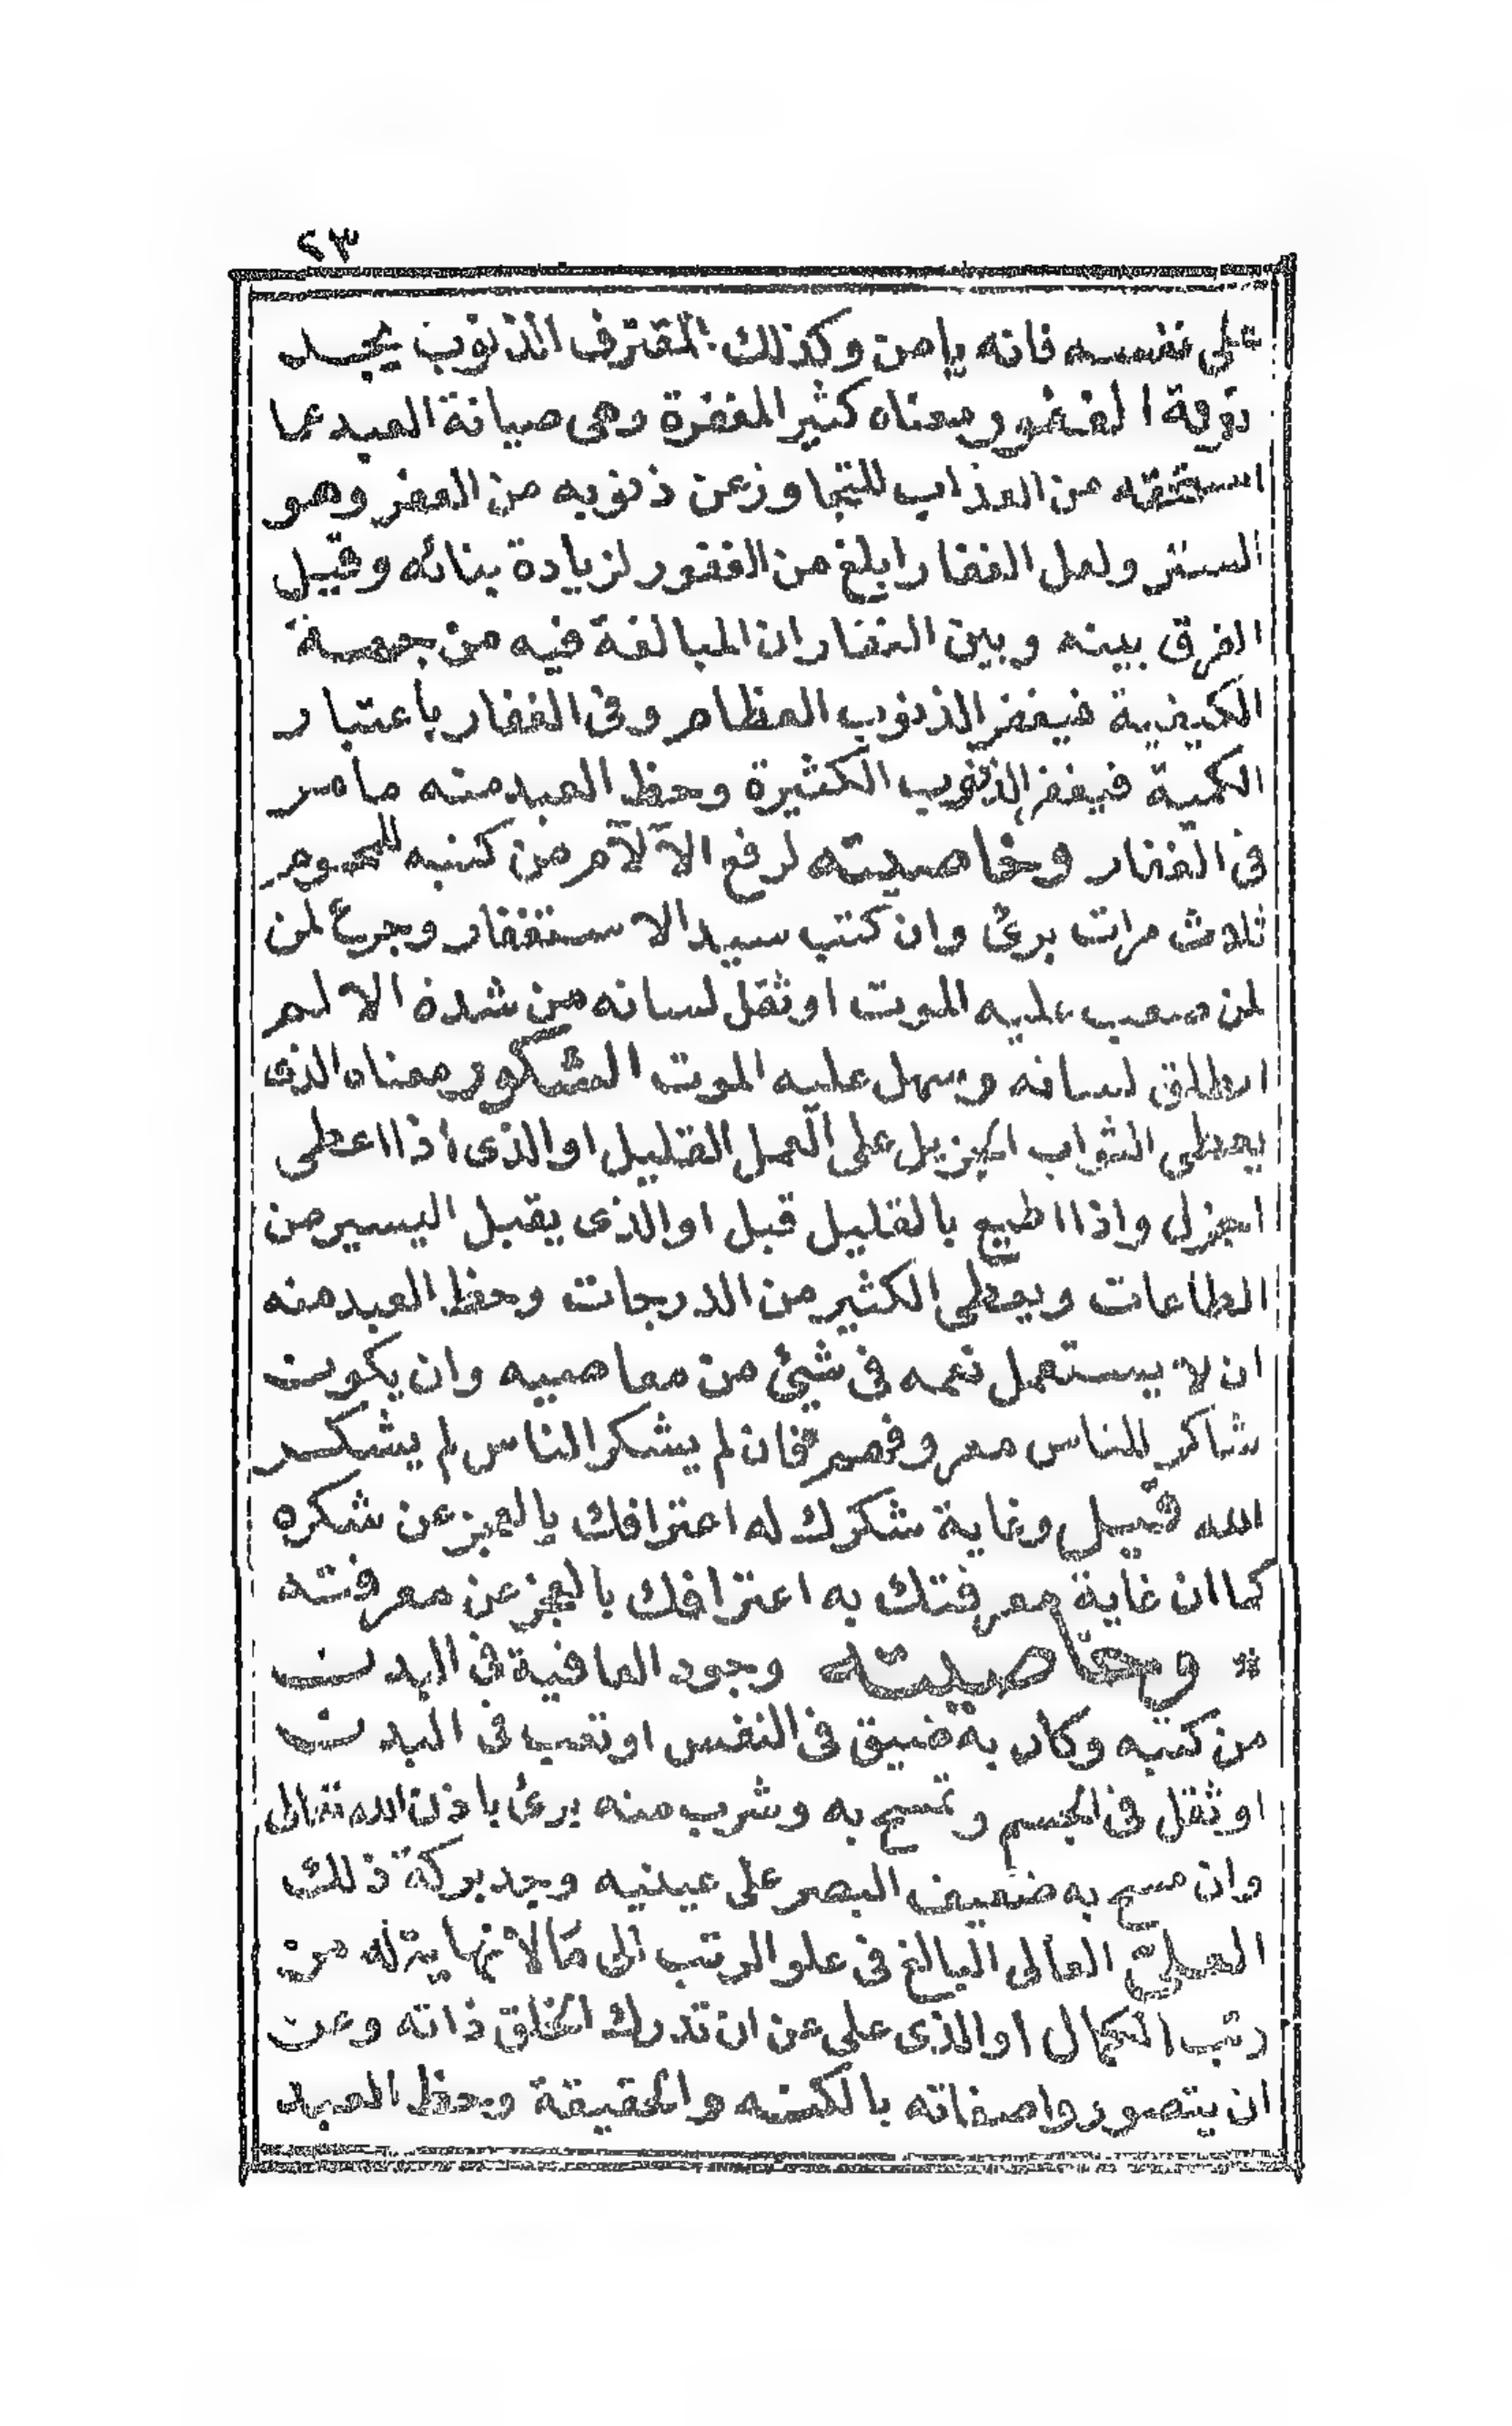 ٢٣
على نفسه فانه يامن وكذلك المقترف الذنوب يجد
توبة الغفور ومعناه كثير المغفرة وهى صيانة العبد عما
استحقه من العذاب للتجاوز عن ذنوبه من الغفر وهو
الستر ولعل الغفار ابلغ من الغفور لزيادة بنائه وقيل
الفرق بينه وبين الغفار ان المبالغة فيه من جهة
الكيفية فيغفر الذنوب العظام وفى الغفار باعتبار
الكمية فيغفر الذنوب الكثيرة وحظ العبد منه مامر
فى الغفار وخاصيته لرفع الآلام من كتبه للمحموم
ثلاث مرات برئ وان كتب سيد الاستغفار وجرع لمن
لمن صعب عليه الموت او ثقل لسانه من شدة الالم
انطلق لسانه وسهل عليه الموت الشكور معناه الذى
يعطى الثواب الجزيل على العمل القليل او الذى اذا اعطى
اجزل واذا اطيع بالقليل قبل او الذى يقبل اليسير من
الطاعات ويعطى الكثير من الدرجات وحظ العبد منه
ان لا يستعمل نعمه فى شئ من معاصيه وان يكون
شاكر للناس معروفهم فان لم يشكر الناس لم يشكر
الله قيل وغاية شكرك له اعترافك بالعجز عن شكره
كما ان غاية معرفتك به اعترافك بالعجز عن معرفته
* وخاصيته وجود العافية فى البدن
من كتبه وكان به ضيق فى النفس او تعب فى البدن
او ثقل فى الجسم وتمسح به وشرب منه برئ باذن الله تعالى
وان مسح به ضعيف البصر على عينيه وجد بركة ذلك
العلى العالى البالغ فى علو الرتب الى مالا نهاية له من
رتب الكمال او الذى على عن ان تدرك الخلق ذاته وعن
ان يتصور واصفاته بالكنه والحقيقة وحظ العبد